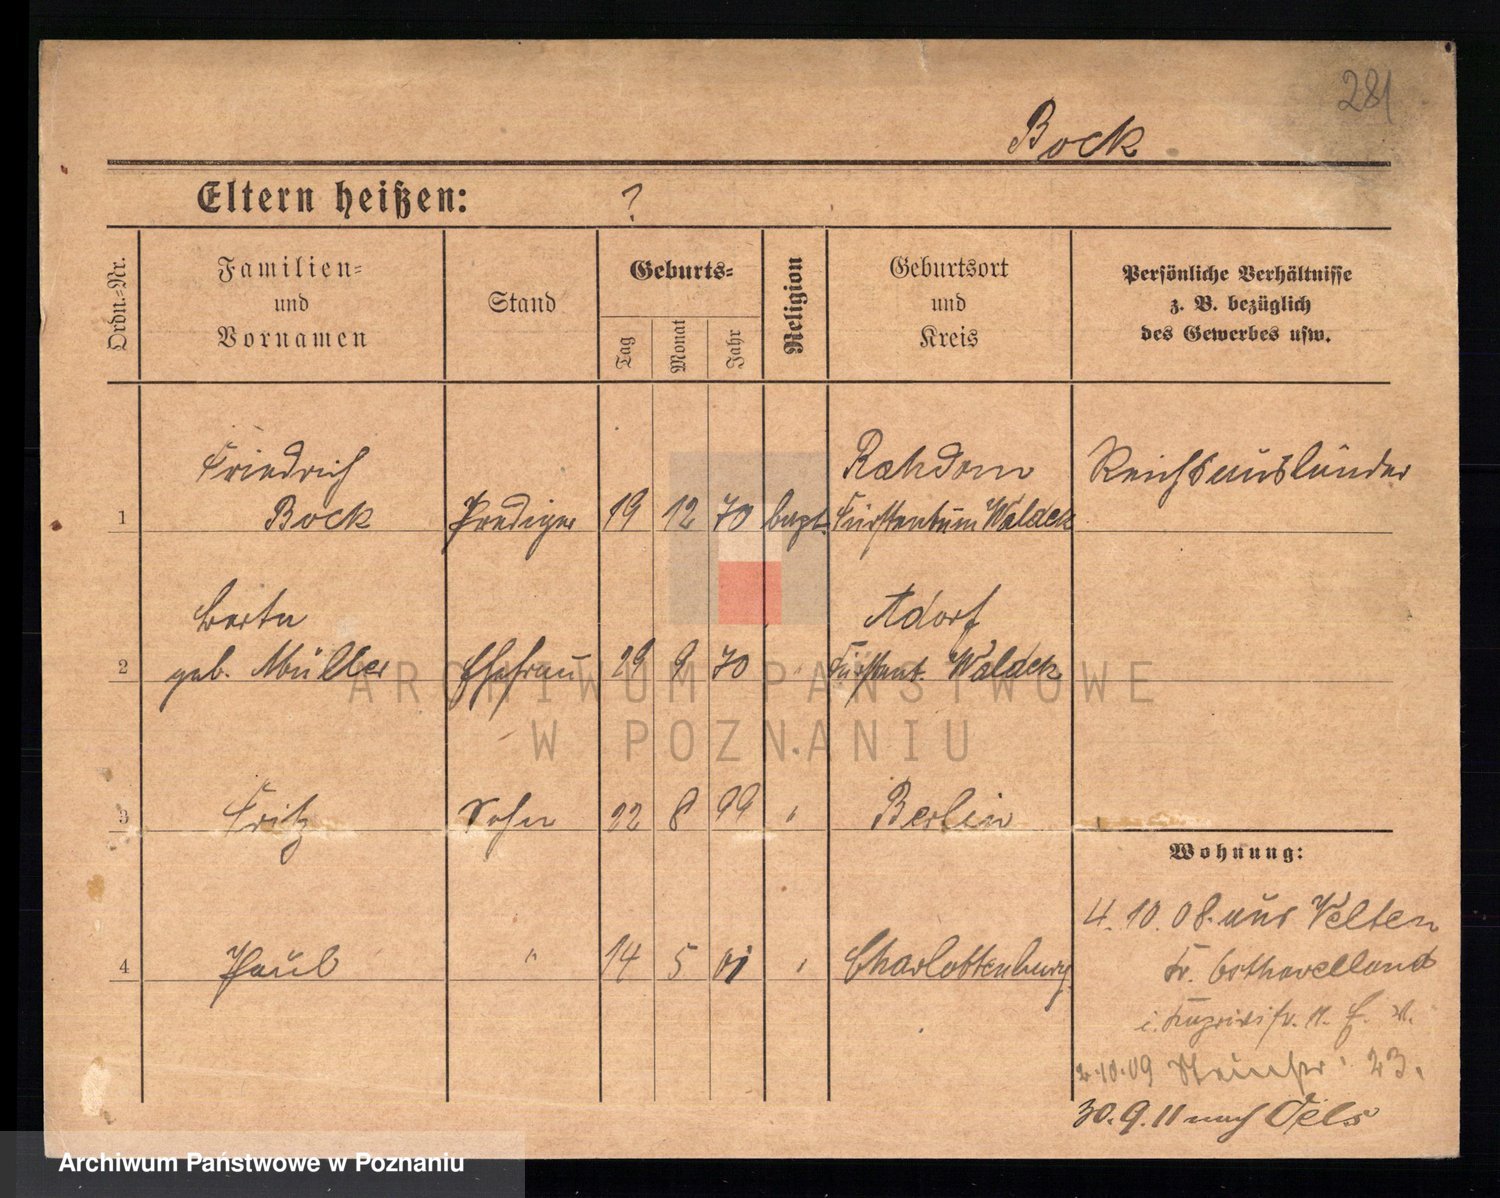 281
Bock
Eltern heißen: ?
Ordn.-Nr.
Familien-
und
Vornamen
Stand
Geburts-
Tag
Monat
Jahr
Religion
Geburtsort
und
Kreis
Persönliche Verhältnisse
z. B. bezüglich
des Gewerbes usw.
Friedrich Rahdorn Reichsausländer
1 Bock Prediger 19 12 70 bapt. Fürstentum Waldeck
Berta Adorf
2 geb. Müller Ehefrau 29 9 70 " Fürstent. Waldeck
3 Fritz Sohn 22 8 99 " Berlin
Wohnung:
4. 10. 08. aus Velten
4 Paul " 14 5 01 " Charlottenburg
Kr. Osthavelland
2.10.09 23.
30.9.11 nach Oels
ARCHIWUM PAŃSTWOWE
W POZNANIU
Archiwum Państwowe w Poznaniu